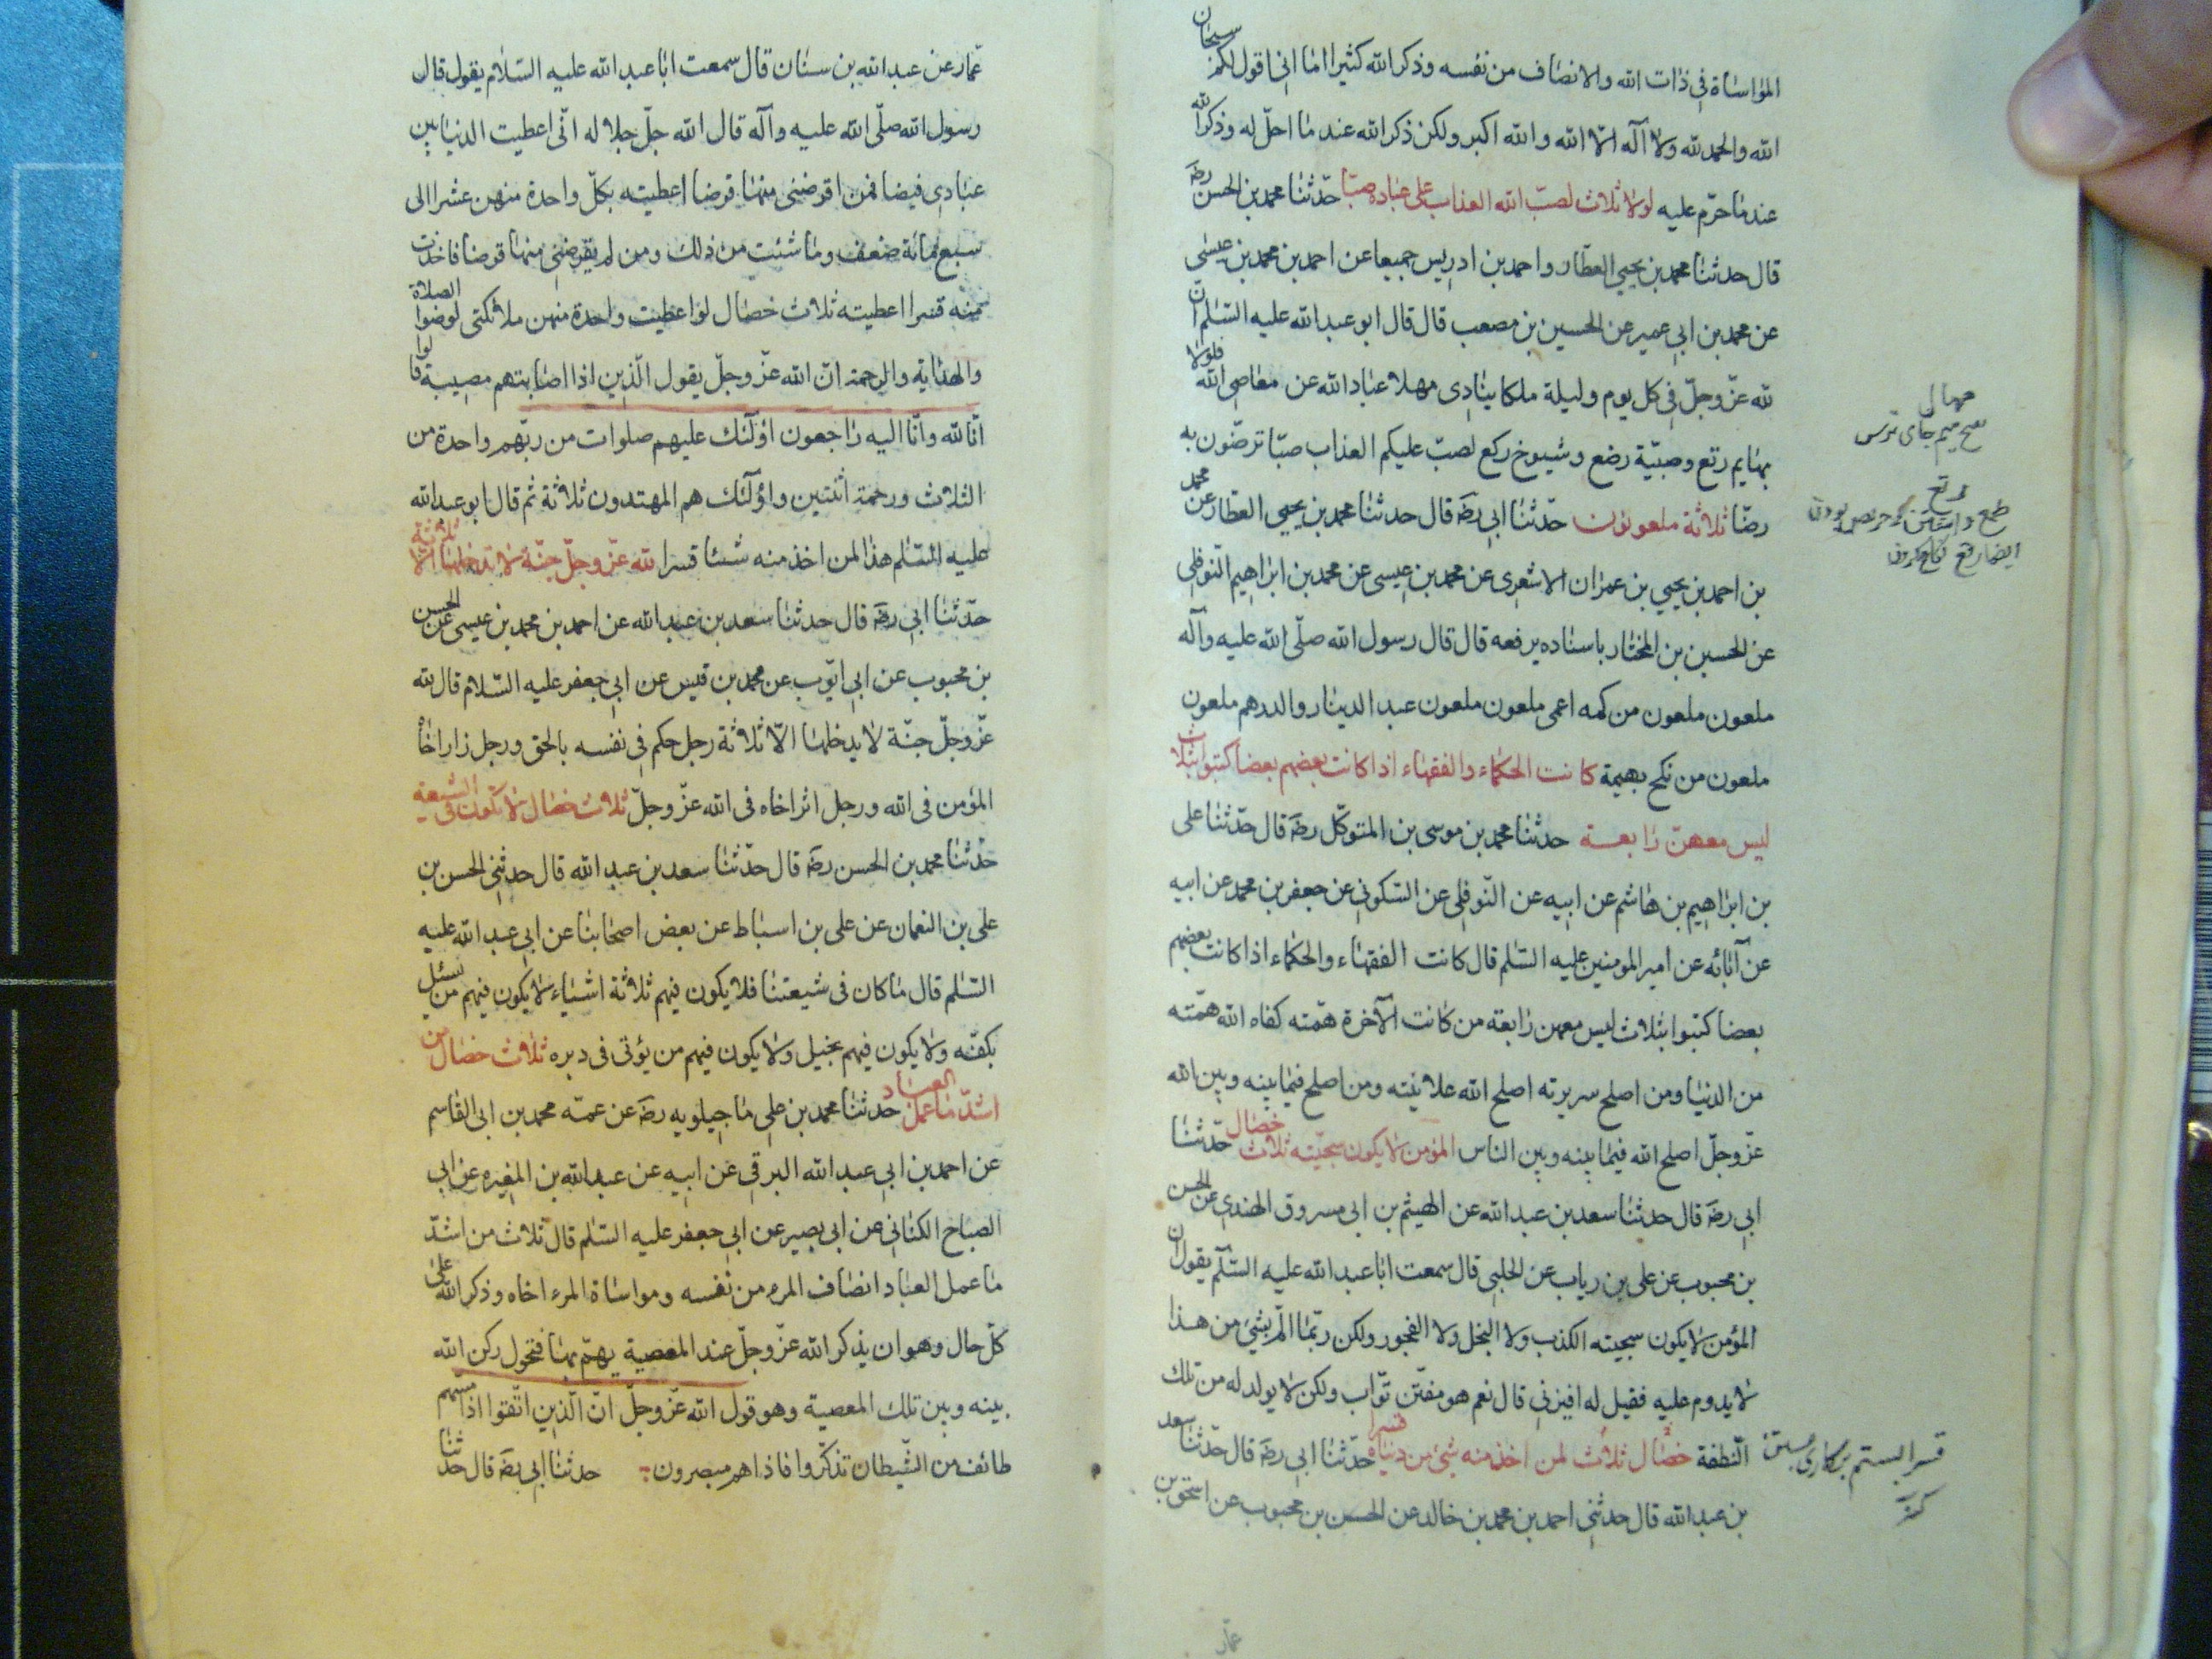 المؤاساة في ذات الله والانصاف من نفسه وذكر الله كثيرا اما اني اقول لكم سبحان
الله والحمد لله ولا اله الا الله والله اكبر ولكن ذكر الله عند ما احل له وذكر الله
عند ما حرم عليه لولا ثلاث لصب الله العذاب على عباده صبا حدثنا محمد بن الحسن رضه
قال حدثنا محمد بن يحيي العطار واحمد بن ادريس جميعا عن احمد بن محمد بن عيسى
عن محمد بن ابي عمير عن الحسين بن مصعب قال قال ابو عبد الله عليه السلم ان
لله عز وجل في كل يوم وليلة ملكا ينادي مهلا عباد الله عن معاصى الله فلولا
بهايم رتع وصبية رضع وشيوخ ركع لصب عليكم العذاب صبا ترضون به
رضا ثلاثة ملعونون حدثنا ابي رضه قال حدثنا محمد بن يحيي العطار عن محمد
بن احمد بن يحيي بن عمران الاشعرى عن محمد بن عيسى عن محمد بن ابراهيم النوفلى
عن الحسين بن المختار باسناده يرفعه قال قال رسول الله صلى الله عليه وآله
ملعون ملعون من كمه اعمى ملعون ملعون عبد الدينار والدرهم ملعون
ملعون من نكح بهيمة كانت الحكماء والفقهاء اذا كاتب بعضهم بعضا كتبوا بثلاث
ليس معهن رابعة حدثنا محمد بن موسى بن المتوكل رضه قال حدثنا على
بن ابراهيم بن هاشم عن ابيه عن النوفلى عن السكوني عن جعفر بن محمد عن ابيه
عن آبائه عن امير المومنين عليه السلم قال كانت الفقهاء والحكماء اذا كاتب بعضهم
بعضا كتبوا بثلاث ليس معهن رابعة من كانت الآخرة همته كفاه الله همته
من الدنيا ومن اصلح سريرته اصلح الله علانيته ومن اصلح فيما بينه وبين الله
عز وجل اصلح الله فيما بينه وبين الناس المؤمن لا يكون سجيته ثلاث خصال حدثنا
ابي رضه قال حدثنا سعد بن عبد الله عن الهيثم بن ابى مسروق الهندي عن الحسن
بن محبوب عن على بن رياب عن الحلبي قال سمعت ابا عبد الله عليه السلم يقول ان
المؤمن لا يكون سجيته الكذب ولا البخل ولا الفجور ولكن ربما الم بشئ من هذا
لا يدوم عليه فقيل له افيزني قال نعم هو مفتن تواب ولكن لا يولد له من تلك
النطفة خصال ثلاث لمن اخذ منه شئ من دنياه قسرا حدثنا ابي رضه قال حدثنا سعد
بن عبد الله قال حدثني احمد بن محمد بن خالد عن الحسن بن محبوب عن اسحق بن
عمار
رتع
عمار عن عبد الله بن سنان قال سمعت ابا عبد الله عليه السلام يقول قال
رسول الله صلى الله عليه وآله قال الله جل جلاله اني اعطيت الدنيا بين
عبادي فيضا فمن اقرضنى منها قرضا اعطيته بكل واحدة منهن عشرا الى
سبع مائة ضعف وما شئت من ذلك ومن لم يقرضنى منها قرضا فاخذت
منه قسرا اعطيته ثلاث خصال لو اعطيت واحدة منهن ملائكتى لرضوا الصلاة
والهداية والرحمة ان الله عز وجل يقول الذين اذا اصابتهم مصيبة قالوا
انا لله وانا اليه راجعون اولئك عليهم صلوات من ربهم واحدة من
الثلاث ورحمة اثنتين واولئك هم المهتدون ثلاثة ثم قال ابو عبد الله
عليه السلم هذا لمن اخذ منه شيئا قسرا لله عز وجل جنة لا يدخلها الا ثلاثة
حدثنا ابي رضه قال حدثنا سعد بن عبد الله عن احمد بن محمد بن عيسى عن الحسن
بن محبوب عن ابي ايوب عن محمد بن قيس عن ابي جعفر عليه السلام قال لله
عز وجل جنة لا يدخلها الا ثلاثة رجل حكم في نفسه بالحق ورجل زار اخاه
المؤمن فى الله ورجل اثر اخاه فى الله عز وجل ثلاث خصال لا تكون في الشيعة
حدثنا محمد بن الحسن رضه قال حدثنا سعد بن عبد الله قال حدثني الحسن بن
على بن النعمان عن على بن اسباط عن بعض اصحابنا عن ابي عبد الله عليه
السلم قال ما كان فى شيعتنا فلا يكون فيهم ثلاثة اشياء لا يكون فيهم من يسئل
بكفه ولا يكون فيهم بخيل ولا يكون فيهم من يؤتى فى دبره ثلاث خصال من
اشد ما عمل العباد حدثنا محمد بن على ما جيلويه رضه عن عمه محمد بن ابى القاسم
عن احمد بن ابي عبد الله البرقي عن ابيه عن عبد الله بن المغيره عن ابى
الصباح الكناني عن ابى بصير عن ابي جعفر عليه السلم قال ثلاث من اشد
ما عمل العباد انصاف المرء من نفسه ومواساة المرء اخاه وذكر الله على
كل حال وهو ان يذكر الله عز وجل عند المعصية يهم بها فتحول ركن الله
بينه وبين تلك المعصية وهو قول الله عز وجل ان الذين اتقوا اذا مسهم
طائف من الشيطان تذكروا فاذا هم مبصرون حدثنا ابي رضه قال حدثنا